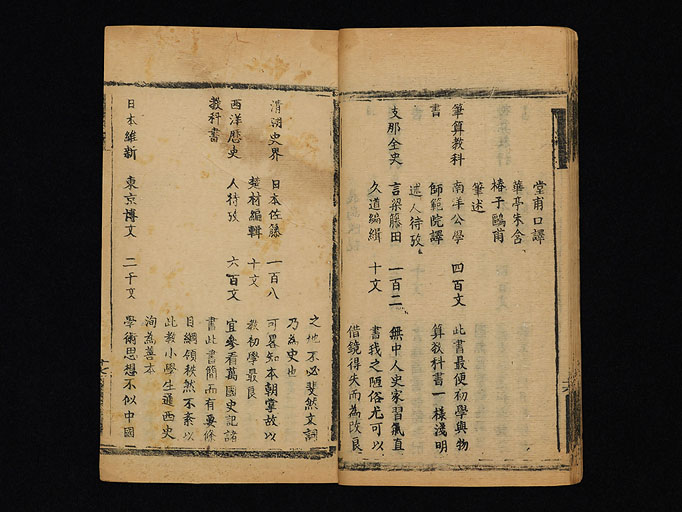 堂甫口譯
華亭朱含
椿子鷗甫
筆述
筆算教科 南洋公學 四百文 此書最便初學與物
書 師範院譯 算教科書一樣淺明
述人待攷
支那全史 言梁藤田 一百二 無中人史家習氣直
久道編緝 十文 書我之陋俗尤可以
借鏡得失而為改良
之地不必斐然文詞
乃為史也
清朝史界 日本佐藤 一百八 可畧知本朝掌故以
楚材編輯 十文 教初學最良
西洋歷史 人待攷 六百文 宜參看萬國史記諸
教科書 書此書簡而有要條
目綱領秩然不紊以
此教小學生通西史
洵為善本
日本維新 東京博文 二千文 學術思想不似中國